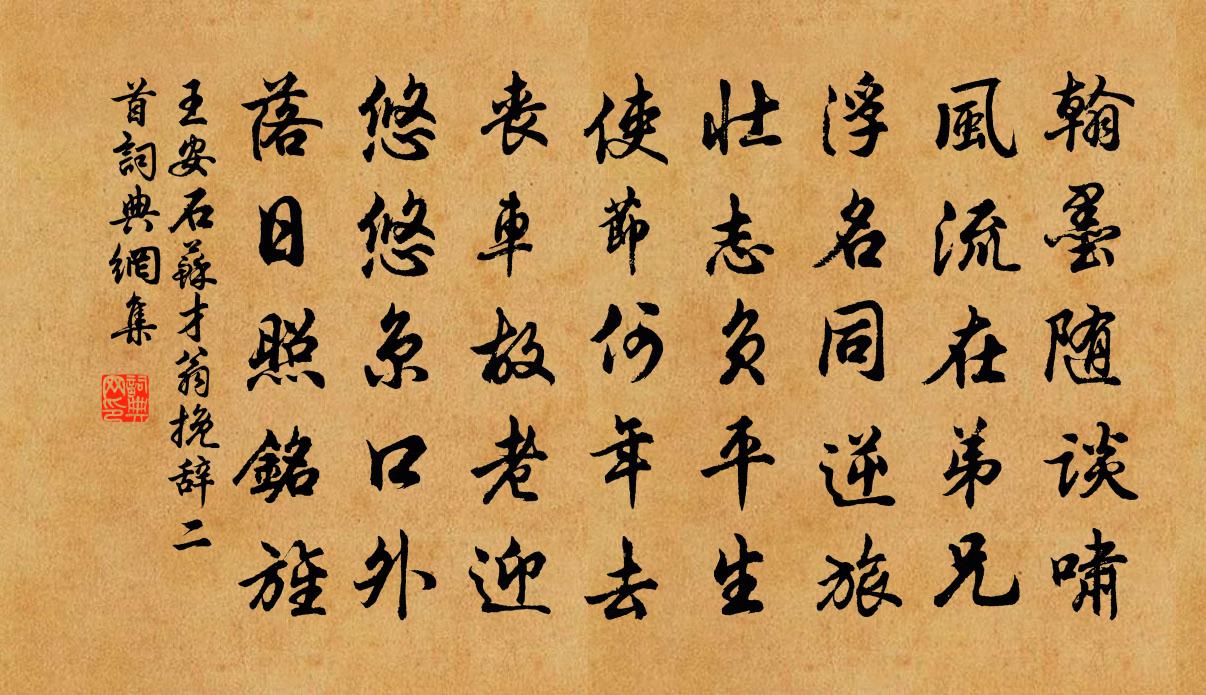 翰墨随談嘯
風流在弟兄
浮名同逆旅
壮志負平生
使節何年去
喪車故老迎
悠悠京口外
落日照銘旌
王安石蘇才翁挽辞二
首詞典網集
詞典網印